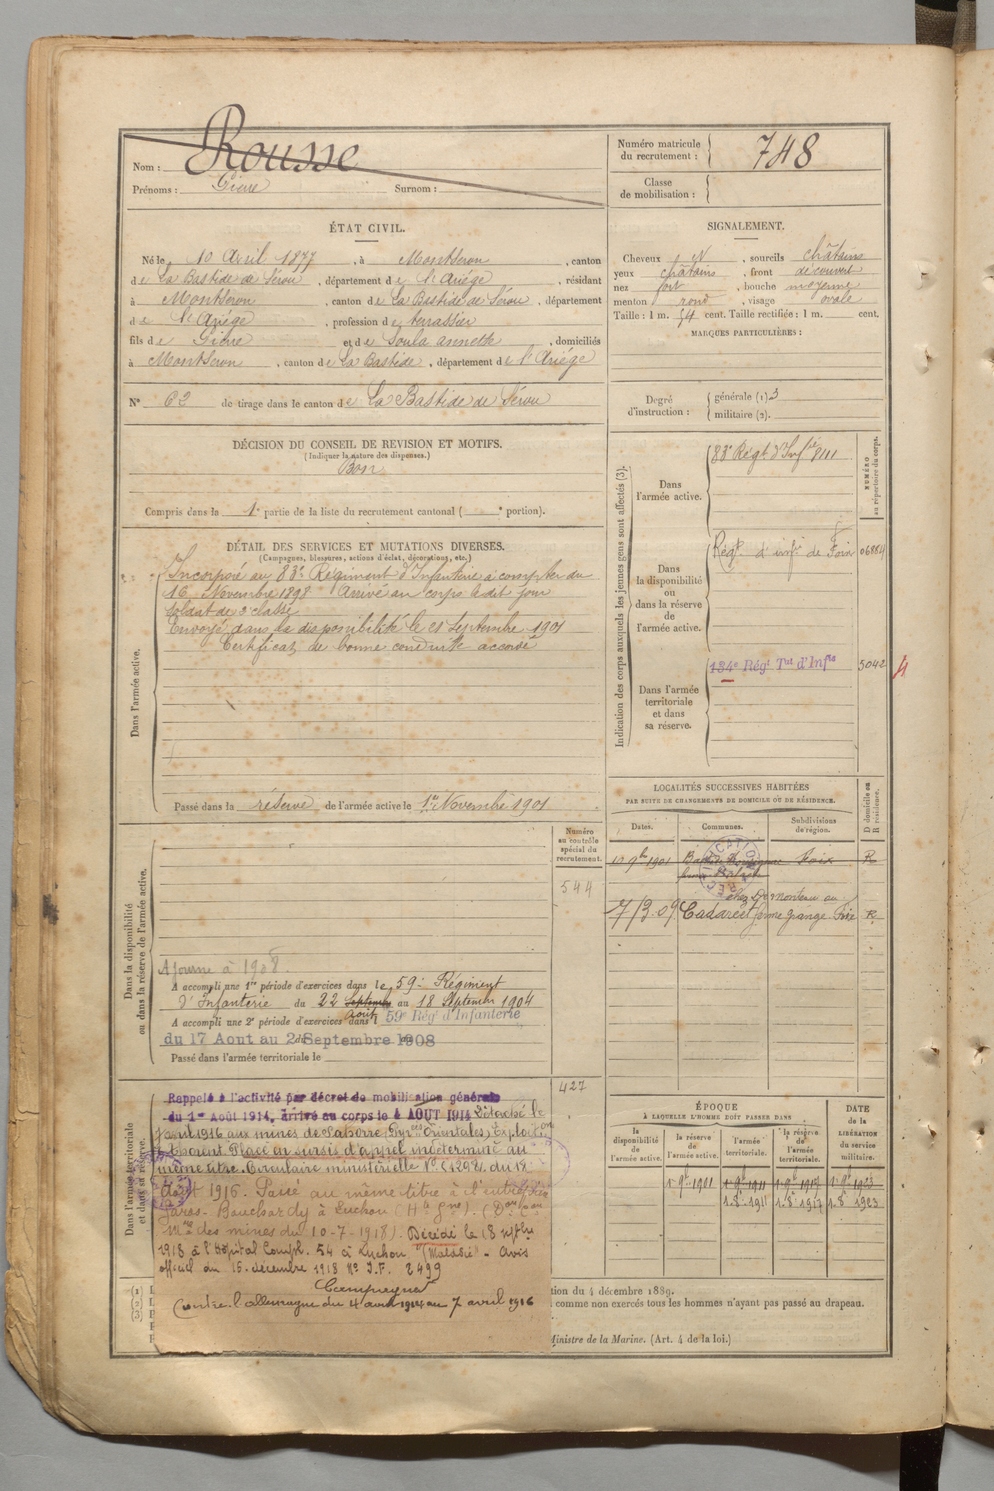 Nom : Rousse
Prénoms : Surnom :
Numéro matricule du recrutement : 748
Classe de mobilisation :
ÉTAT CIVIL.
Né le 10 Avril 1877, à Montseron, canton
de La Bastide de Sérou, département de l'Ariége, résidant
à Montséron, canton de La Bastide de Sérou, département
de l'Ariége, profession de terrassier
fils de et de Soula annette, domiciliés
à Montseron, canton de La Bastide, département de l'Ariége
N° 62 de tirage dans le canton de La Bastide de Sérou
SIGNALEMENT.
Cheveux , sourcils châtains
yeux châtains, front découvert
nez fort, bouche moyenne
menton rond, visage ovale
Taille : 1 m. 54 cent. Taille rectifiée : 1 m. cent.
MARQUES PARTICULIÈRES :
Degré d'instruction : générale (1) 3
militaire (2).
DÉCISION DU CONSEIL DE REVISION ET MOTIFS.
(Indiquer la nature des dispenses.)
Bon
Compris dans la 1e partie de la liste du recrutement cantonal ( e portion).
DÉTAIL DES SERVICES ET MUTATIONS DIVERSES.
(Campagnes, blessures, actions d'éclat, décorations, etc.)
Dans l'armée active.
Incorporé au 83e Régiment d'Infanterie à compter du
16 Novembre 1898 Arrivé au corps ledit jour
Soldat de 2e classe
Envoyé dans la disponibilité le 21 Septembre 1901
Certificat de bonne conduite accordé
Passé dans la réserve de l'armée active le 1er Novembre 1901
Indication des corps auxquels les jeunes gens sont affectés (3).
NUMÉRO au répertoire du corps.
Dans l'armée active.
83e Régt d'Infie 8111
Dans la disponibilité ou dans la réserve de l'armée active.
Régt d'infie de Foix 06884
Dans l'armée territoriale et dans sa réserve.
134e Régt Tal d'Infie 5042
4
LOCALITÉS SUCCESSIVES HABITÉES
PAR SUITE DE CHANGEMENTS DE DOMICILE OU DE RÉSIDENCE.
Dates. Communes. Subdivisions de région. D domicile ou R résidence.
10 9bre 1901 Foix R
chez Mr Monteau au
7/3-09 Cadarcet ferme grange. Foix R
Dans la disponibilité ou dans la réserve de l'armée active.
Numéro au contrôle spécial du recrutement.
544
Ajourné à 1908.
A accompli une 1re période d'exercices dans le 59e Régiment
d'Infanterie du 22 Septembre août au 18 Septembre 1904
A accompli une 2e période d'exercices dans l 59e Régt d'Infanterie
du 17 Aout au 2 Septembre 1908
Passé dans l'armée territoriale le
Dans l'armée territoriale et dans sa réserve.
427
Rappelé à l'activité par décret de mobilisation générale
du 1er Août 1914, arrivé au corps le 4 AOUT 1914 Détaché le
7 avril 1916 aux mines de Pyrées Orientales, Exploiton
Placé en sursis d'appel indéterminé au
même titre. Circulaire ministérielle No du 12
Août 1916. Passé au même titre à l'entreprise
à Luchon (Hte Gne).
des mines du 10-7-1918). Décédé le 18
1918 à l'Hôpital Compl. 54 à Luchon "(Maladie)" - Avis
officiel du 15 décembre 1918 No I.F. 2499
Campagne
Contre l'allemagne du 4 aout 1914 au 7 avril 1916
ÉPOQUE
À LAQUELLE L'HOMME DOIT PASSER DANS
DATE DE LA LIBÉRATION DU SERVICE MILITAIRE.
la disponibilité de l'armée active. la réserve de l'armée active. l'armée territoriale. la réserve de l'armée territoriale.
1 9bre 1901 1 9bre 1911 1 9bre 1917 1 9bre 1923
1.8bre 1911 1.8bre 1917 1.8bre 1923
(1)
(2)
(3)
tion du 4 décembre 1889.
comme non exercés tous les hommes n'ayant pas passé au drapeau.
Ministre de la Marine. (Art. 4 de la loi.)